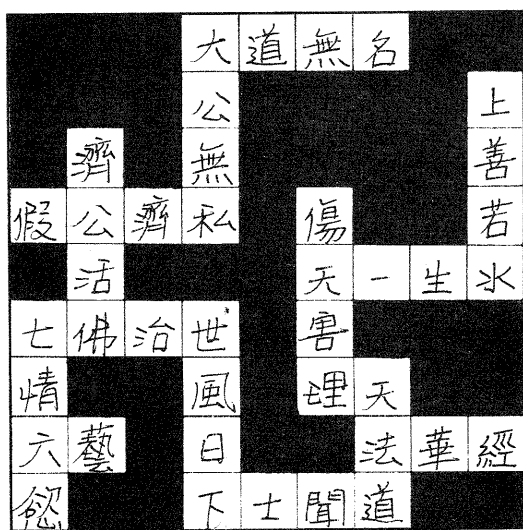 大道無名
公 上
濟 無 善
假公濟私 傷 若
活 天一生水
七佛治世 害
情 風 理天
六藝 日 法華經
慾 下士聞道